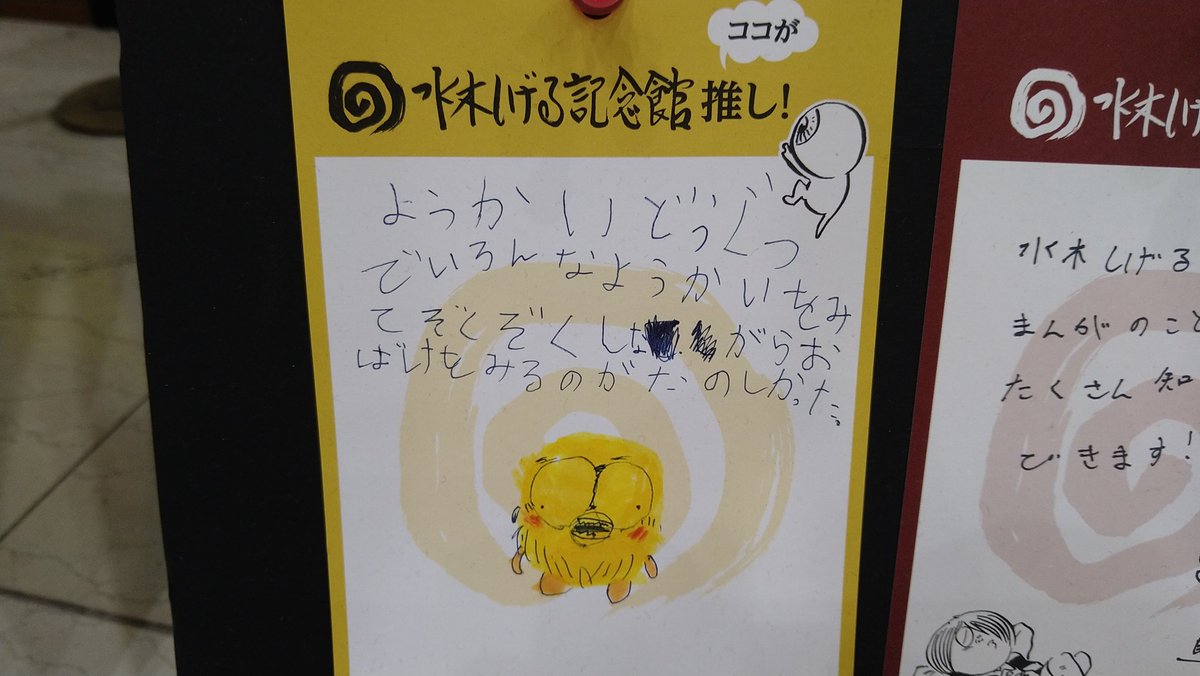 ココが
水木しげる記念館推し!
ようかいどうくつ
でいろんなようかいをみ
てぞくぞくしながらお
ばけをみるのがたのしかった。
水木しげ
水木しげる
まんがのこと
たくさん知
できます!